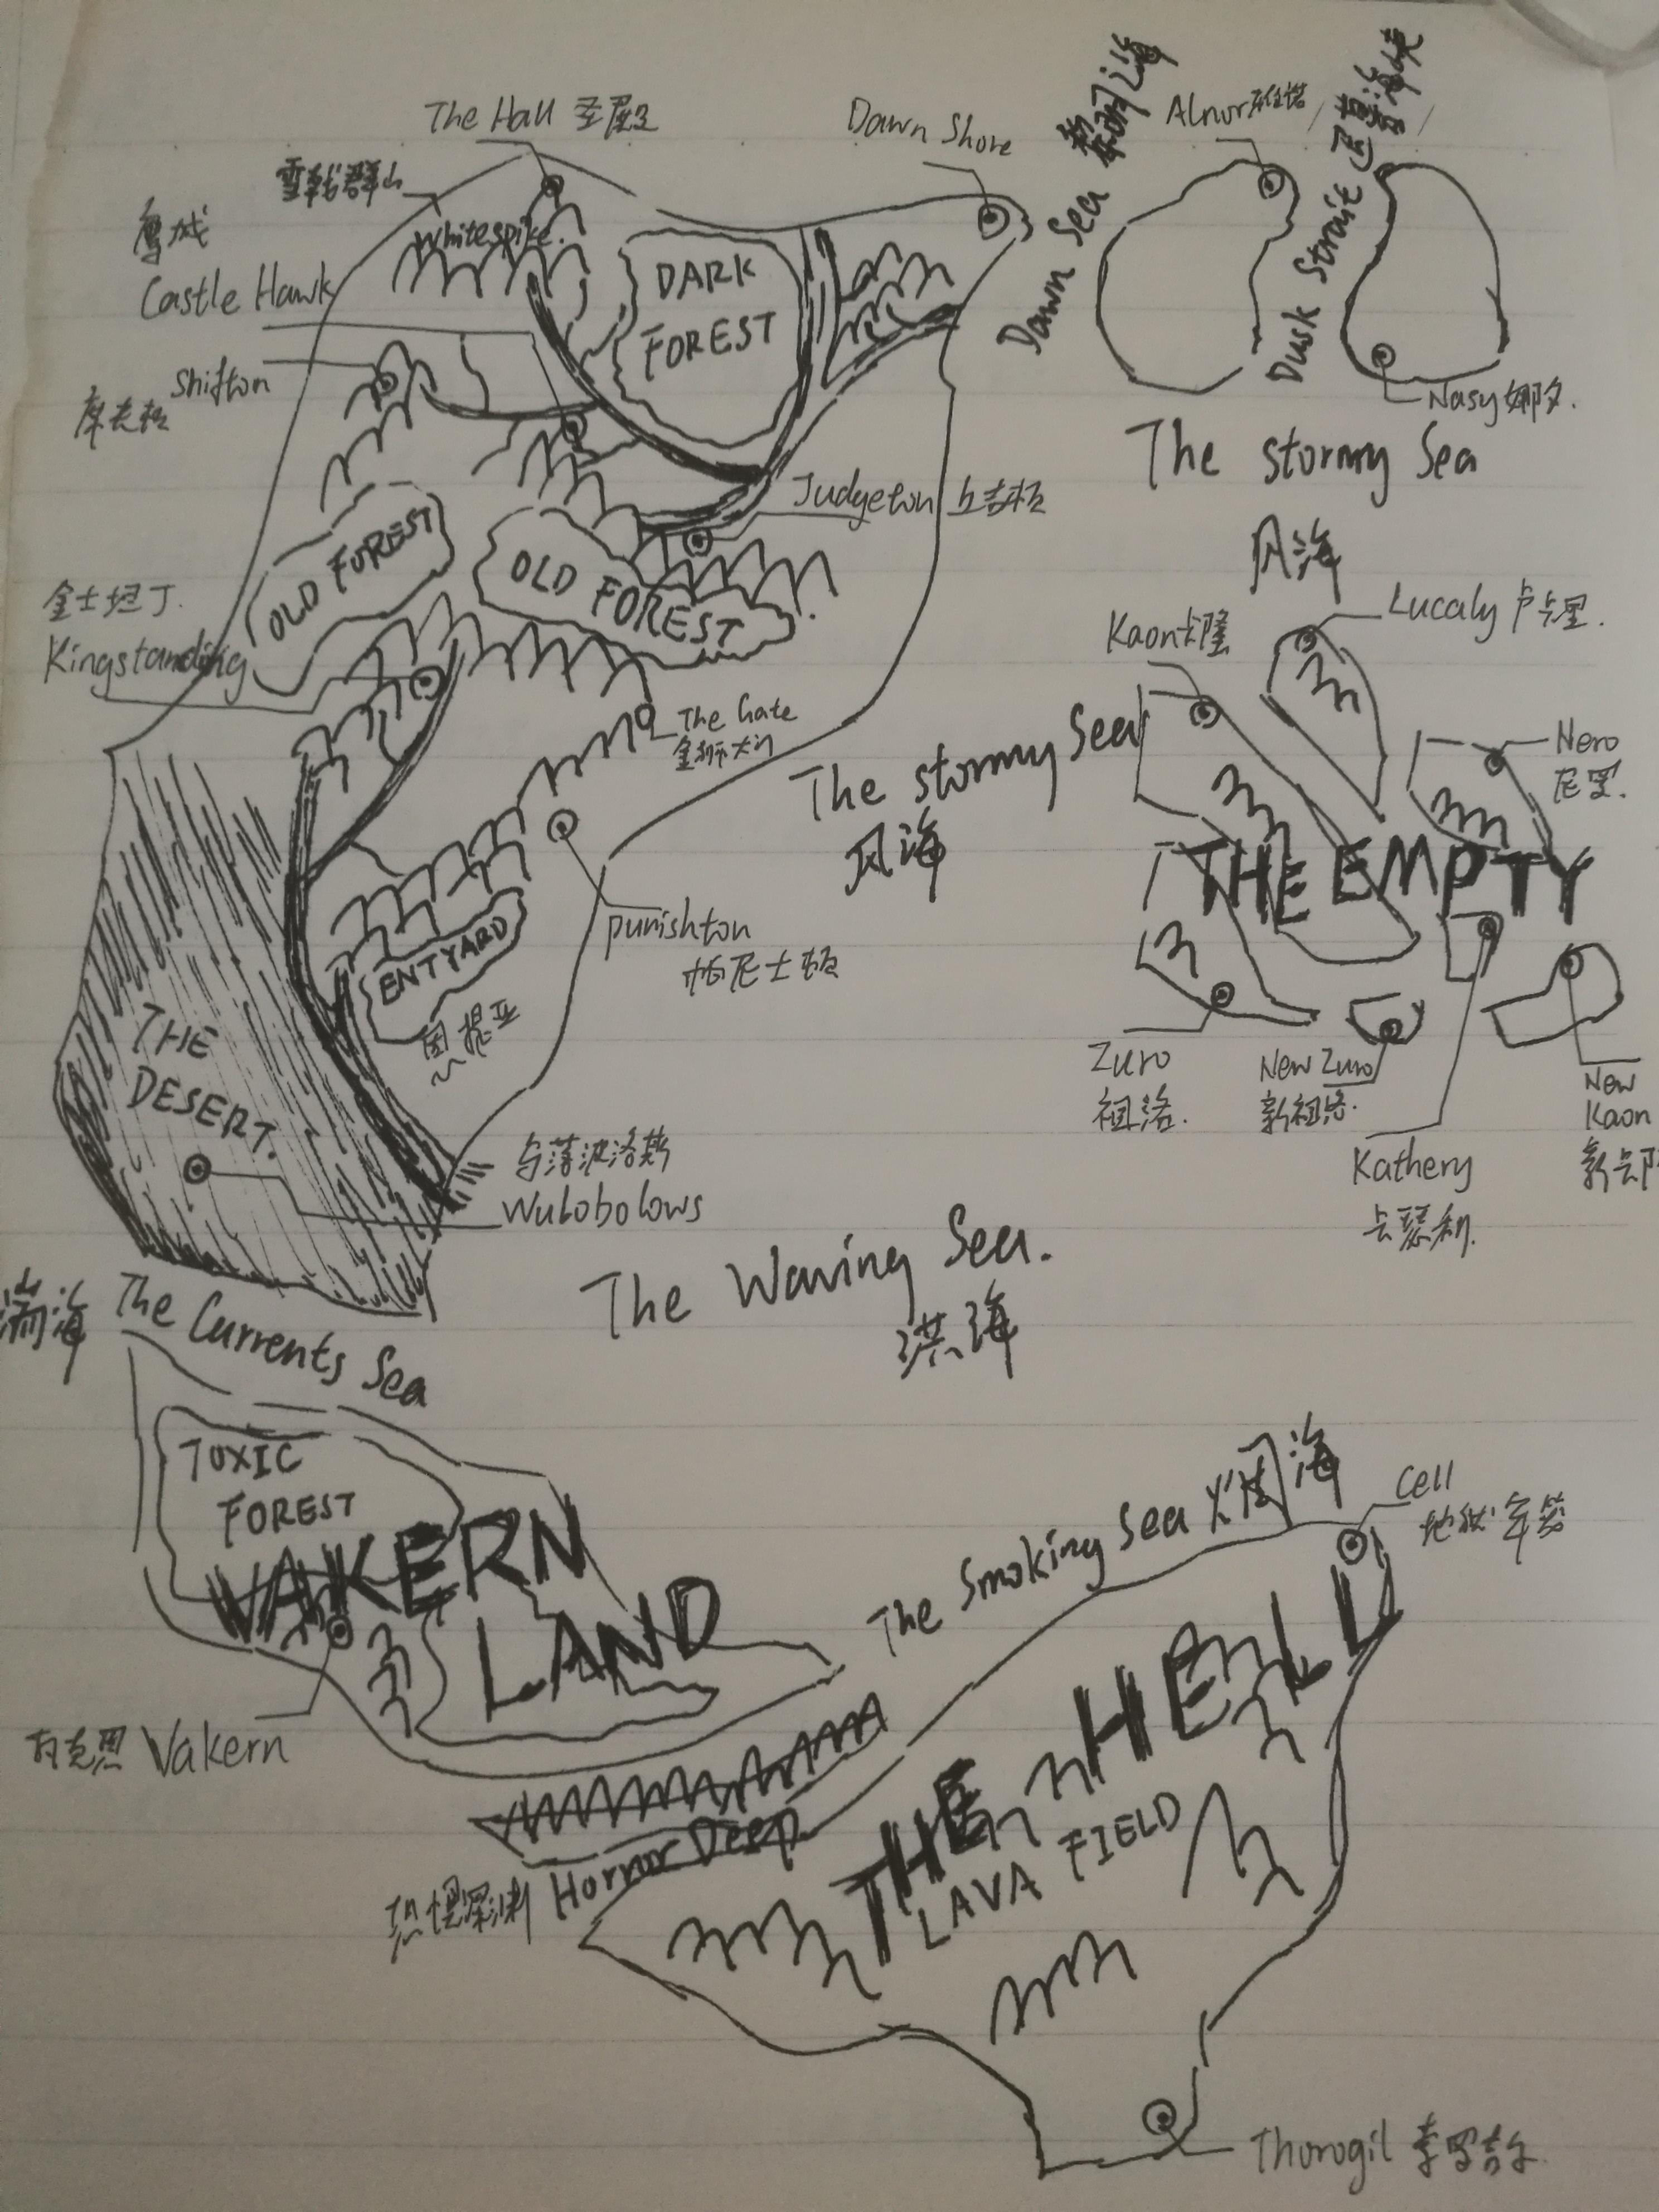 The Hall 圣殿
Dawn Shore
黎明之海
Dawn Sea
Alnor
Dusk Strait
雪戟群山
Whitespike
鹰城
Castle Hawk
DARK
FOREST
Shifton
Nasy 娜夕.
The stormy Sea
风海
Judgeton
OLD FOREST
OLD FOREST
金士坦丁.
Kingstanding
Kaon 卡隆
Lucaly 卢卡里.
The Gate
金狮大门
The stormy Sea
风海
Nero
尼罗.
THE EMPTY
Punishton
帕尼士顿
ENTYARD
恩提亚
THE
DESERT.
Zuro
祖洛.
New Zuro
新祖洛.
Kathery
卡瑟利.
New
Kaon
乌落波洛斯
Wulobolows
The Waving Sea.
洪海
湍海 The Currents Sea
TOXIC
FOREST
VAKERN
LAND
The Smoking Sea 烟海
Cell
地狱牢笼
Vakern
THE HELL
LAVA FIELD
恐惧深渊 Horror Deep
Thorogil